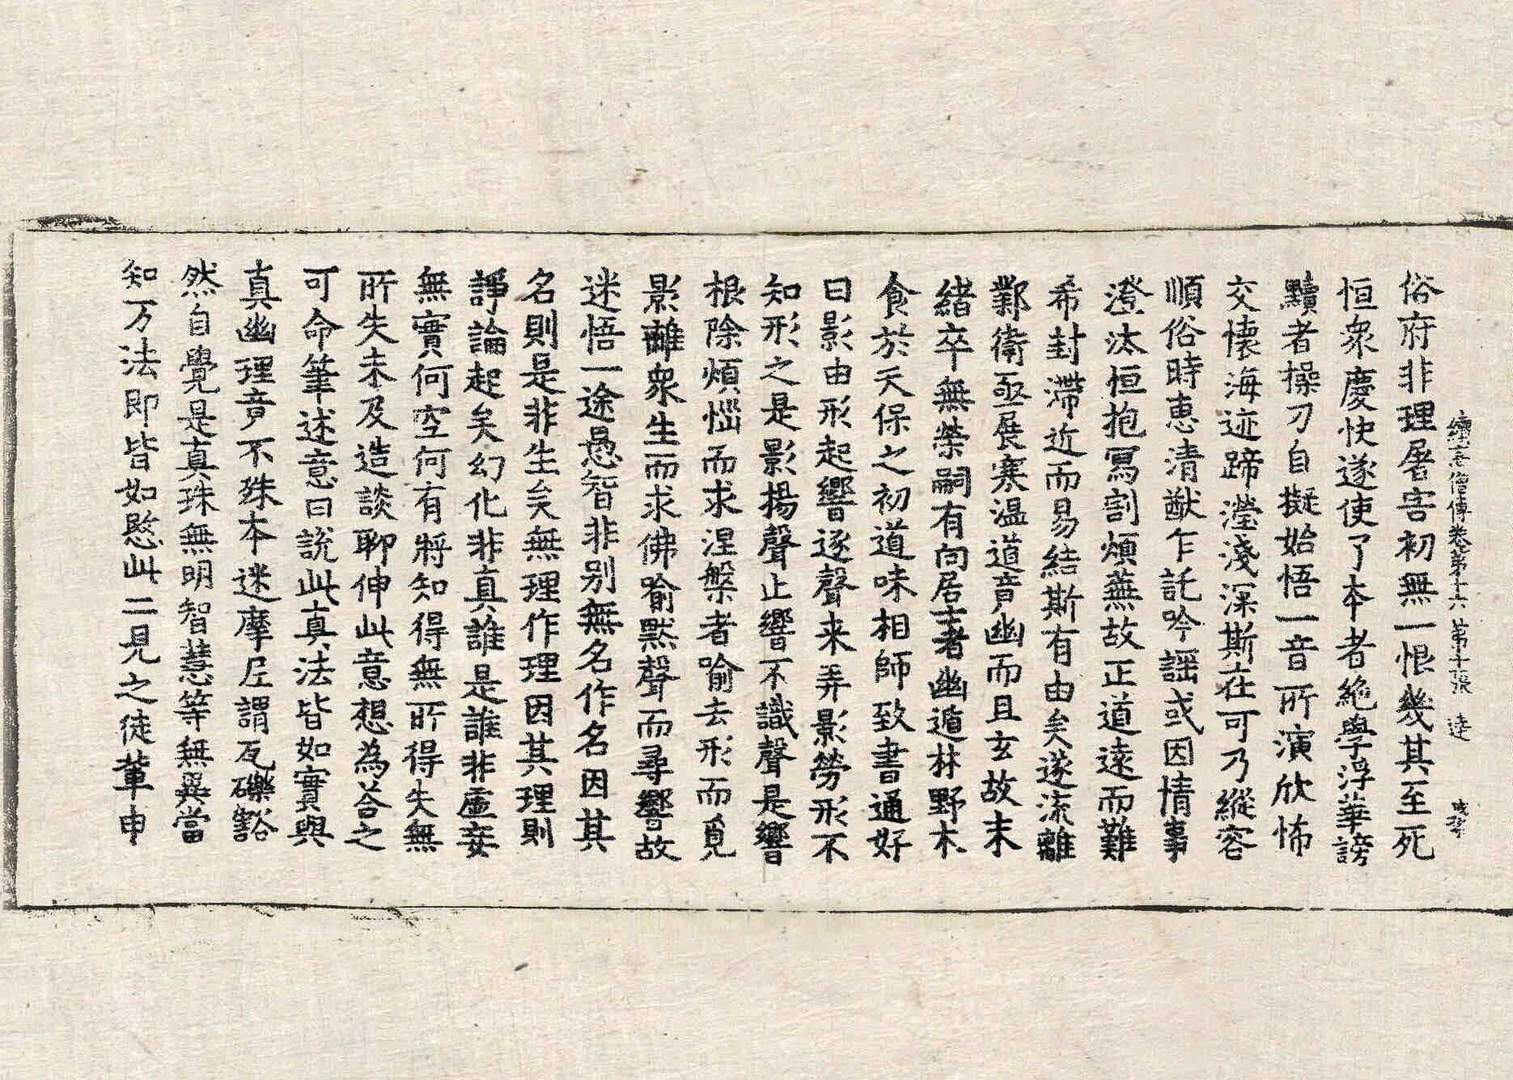 續高僧傳卷第十六 第十張 達
俗府非理屠害初無一恨幾其至死
恒衆慶快遂使了本者絶學浮華謗
黷者操刀自擬始悟一音所演欣怖
交懷海迹蹄瀅淺深斯在可乃縱容
順俗時惠清猷乍託吟謡或因情事
澄汰恒抱寫割煩蕪故正道遠而難
希封滯近而易結斯有由矣遂流離
鄴衛亟展寒溫道竟幽而且玄故末
緒卒無榮嗣有向居士者幽遁林野木
食於天保之初道味相師致書通好
曰影由形起響逐聲来弄影勞形不
知形之是影揚聲止響不識聲是響
根除煩惱而求涅槃者喻去形而覓
影離衆生而求佛喻黙聲而尋響故
迷悟一途愚智非别無名作名因其
名則是非生矣無理作理因其理則
諍論起矣幻化非真誰是誰非虛妄
無實何空何有將知得無所得失無
所失未及造談聊伸此意想為荅之
可命筆述意曰説此真法皆如實與
真幽理竟不殊本迷摩尼謂瓦礫豁
然自覺是真珠無明智慧等無異當
知万法即皆如愍此二見之徒輩申